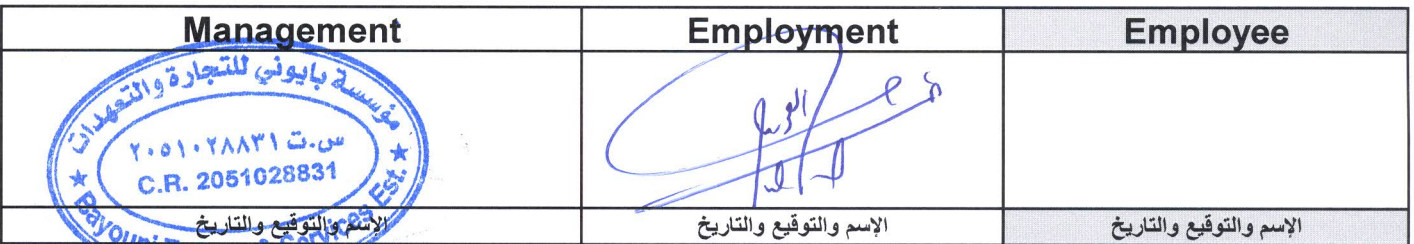 Management Employment Employee
مؤسسة بايوني للتجارة والتعهدات
س.ت ٢٠٥١٠٢٨٨٣١
C.R. 2051028831
Bayouni Services Est.
الإسم والتوقيع والتاريخ الإسم والتوقيع والتاريخ الإسم والتوقيع والتاريخ